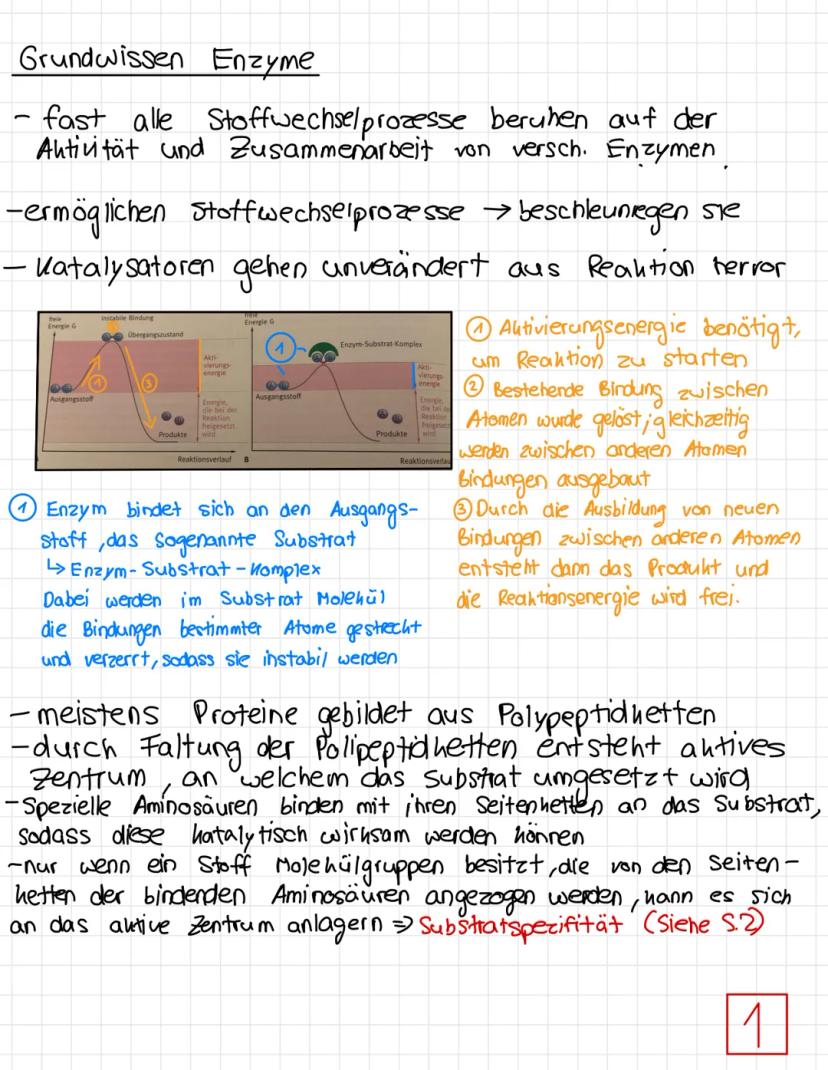 Grundwissen Enzyme
- fast alle Stoffwechselprozesse beruhen auf der
Aktivität und Zusammenarbeit von versch. Enzymen
-ermöglichen Stoffwechselprozesse → beschleunegen sie
- Katalysatoren gehen unverändert aus Reaktion hervor
freie
Energie G
instabile Bindung
2
Übergangszustand
Akti-
vierungs-
energie
1
3
Ausgangsstoff
Energie,
die bei der
Reaktion
freigesetzt
wird
Produkte
Reaktionsverlauf
B
freie
Energie G
1
Enzym-Substrat-Komplex
Akti-
vierungs-
energie
Ausgangsstoff
Energie,
die bei de
Reaktion
freigesetz
wird
Produkte
Reaktionsverlau
① Aktivierungsenergie benötigt,
um Reaktion zu starten
② Bestehende Bindung zwischen
Atomen wurde gelöst, gleichzeitig
werden zwischen anderen Atomen
Bindungen ausgebaut
③ Durch die Ausbildung von neuen
Bindungen zwischen anderen Atomen
entsteht dann das Produkt und
die Reaktionsenergie wird frei.
① Enzym bindet sich an den Ausgangs-
stoff, das sogenannte Substrat
↳ Enzym-Substrat-Komplex
Dabei werden im Substrat Molekül
die Bindungen bestimmter Atome gestreckt
und verzerrt, sodass sie instabil werden
- meistens Proteine gebildet aus Polypeptidketten
-durch Faltung der Polipeptidketten entsteht aktives
Zentrum, an welchem das Substrat umgesetzt wird
-Spezielle Aminosäuren binden mit ihren Seitenketten an das Substrat,
sodass diese katalytisch wirksam werden können
-nur wenn ein Stoff Molekülgruppen besitzt, die von den Seiten-
ketten der bindenden Aminosäuren angezogen werden, kann es sich
an das aktive Zentrum anlagern ⇒ Substratspezifität (Siehe S.2)
1